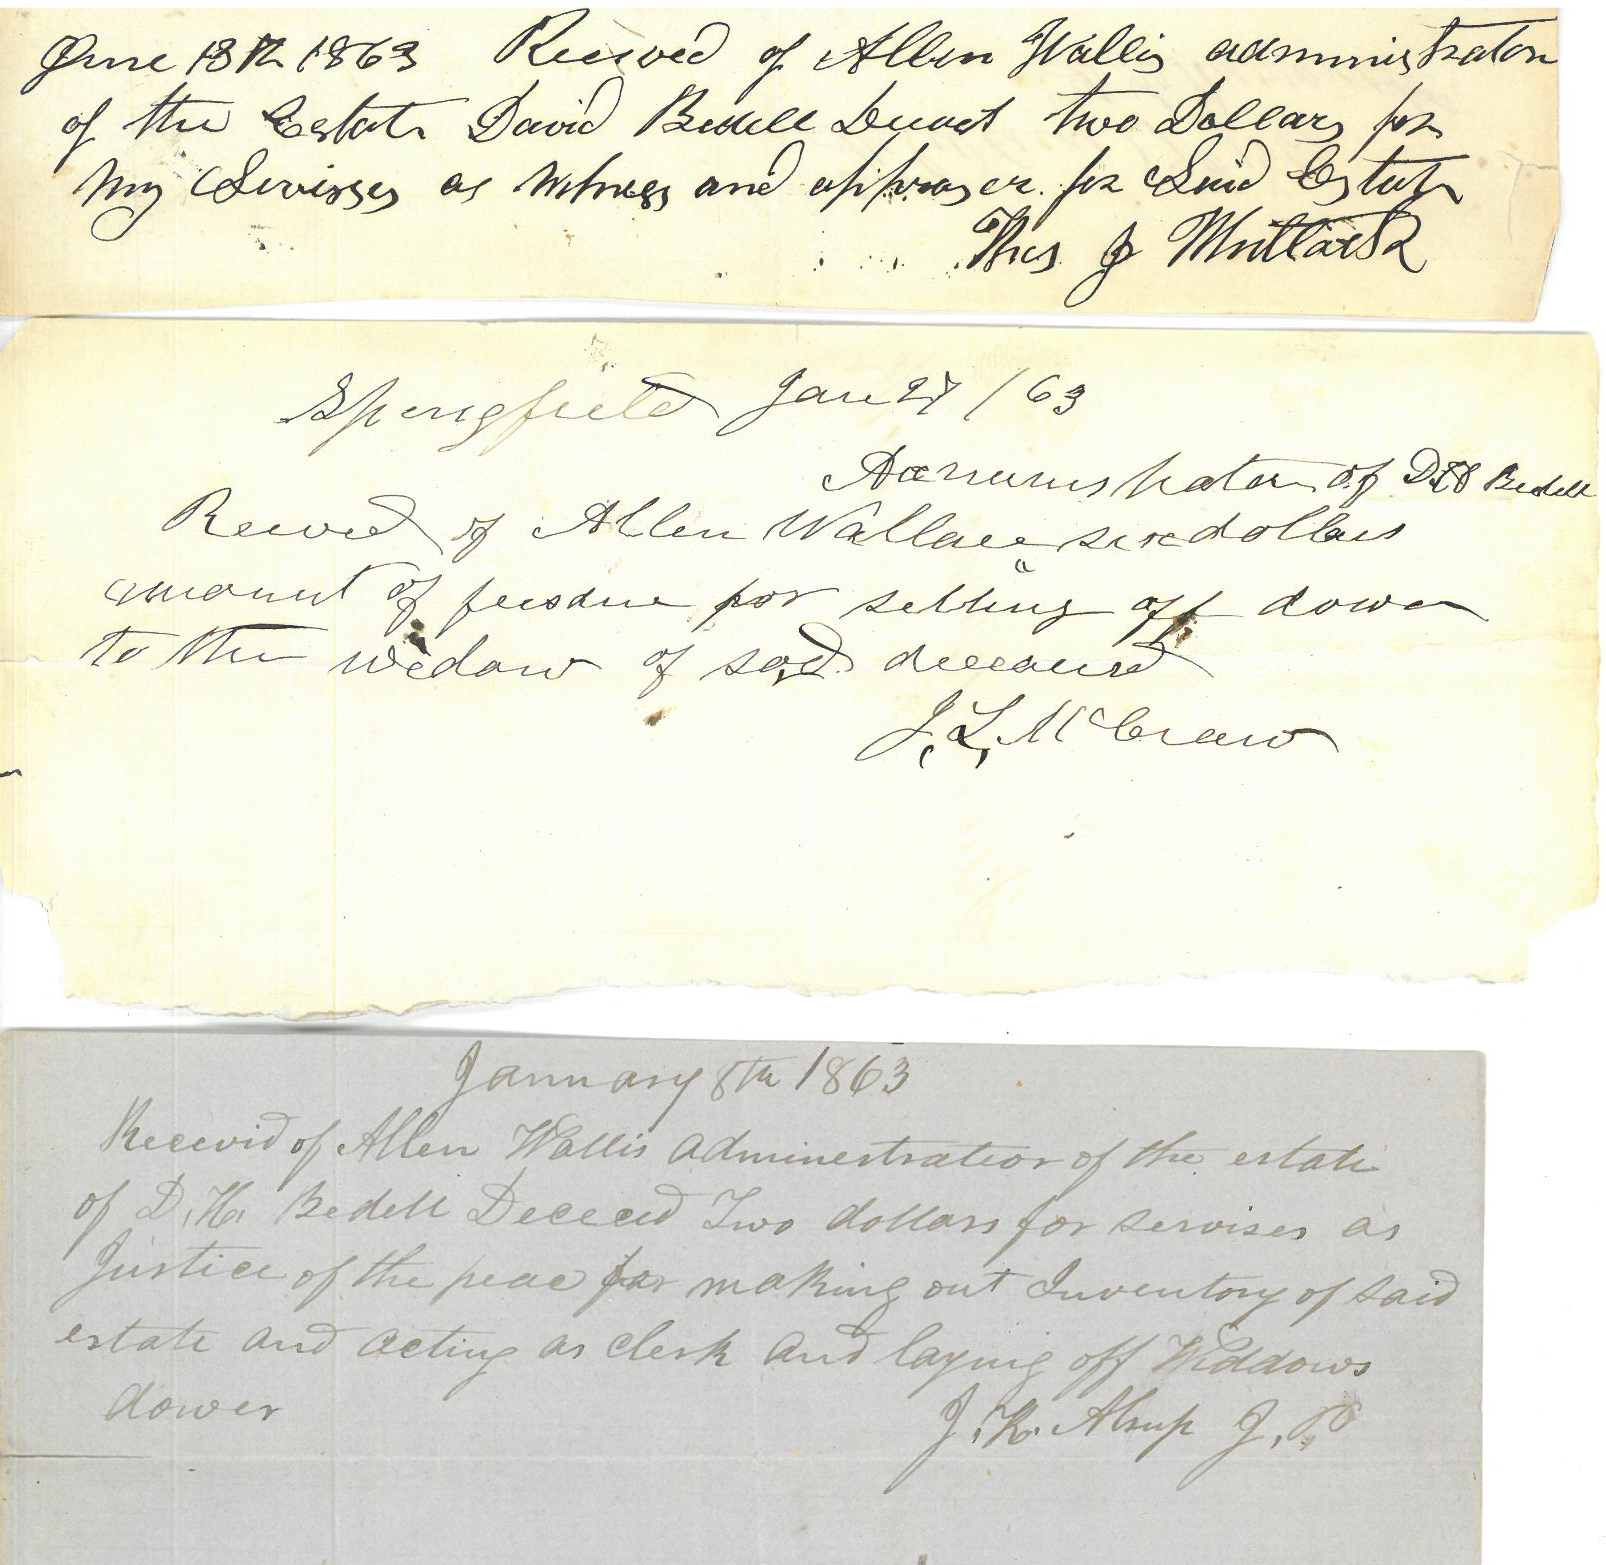 June 18th 1863 Recived of Allen Wallis administrator
of the Estate David Bedell Decast two Dollars for
my Servisses as witness and appraser for Said Estate
Thos J
Springfield Jan 27 / 63
Administrator of D H Bedell
Received of Allen Wallace six dollars
amount of fees due for setting off dower
to the widow of said deceased
J. L. McCraw
January 8th 1863
Recevid of Allen Wallis administratior of the estate
of D. H. Bedell Dececed Two dollars for servises as
Justice of the peace for making out Inventory of said
estate and acting as clerk and laying off Widdows
dower
J. K. Alsup J. P